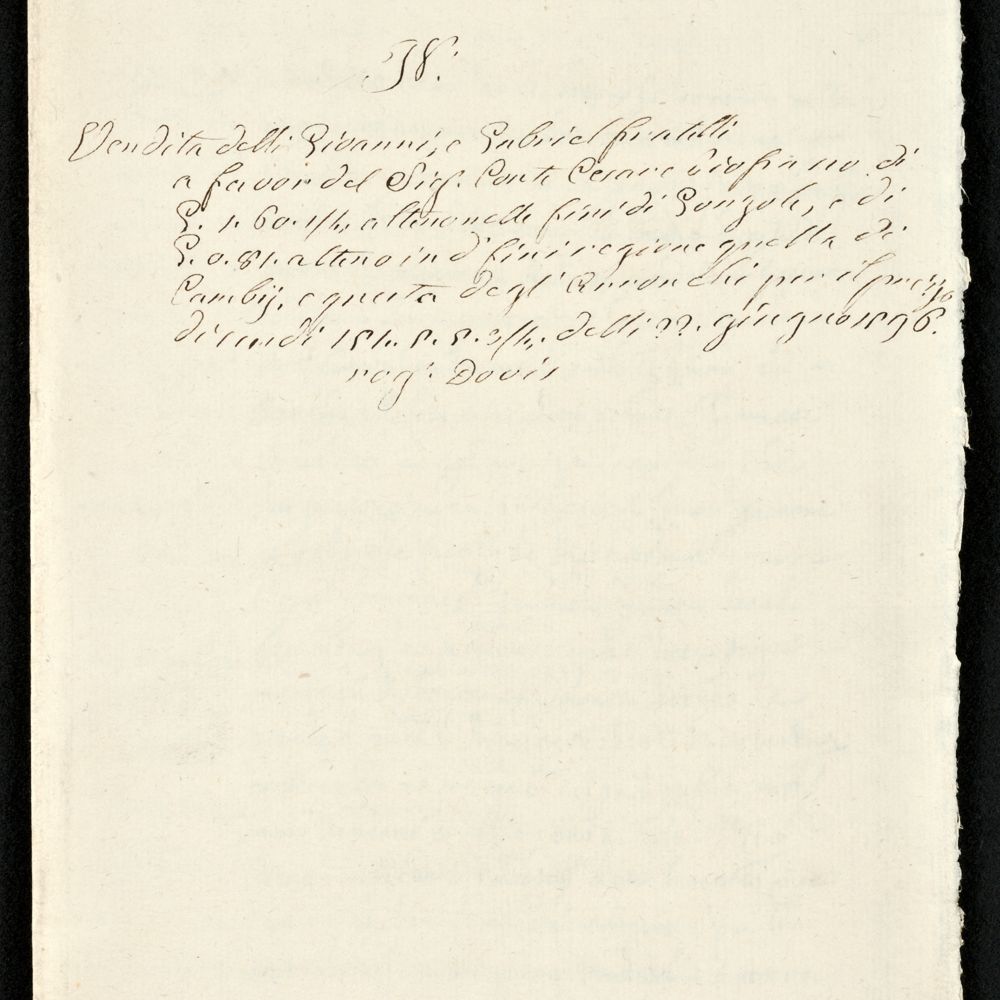 18.
Vendita delli Giovanni, e Gabriel fratelli
a favor del Sig.r Conte Cesare di
G. 1. 60. 1/4, alteno nelle fini di Gonzole, e di
G. 0. 81. alteno in d.i fini regione quella di
Cambij, e questa degl' per il prezzo
di scudi delli 22. giugno 1596.
rog.o Dovis